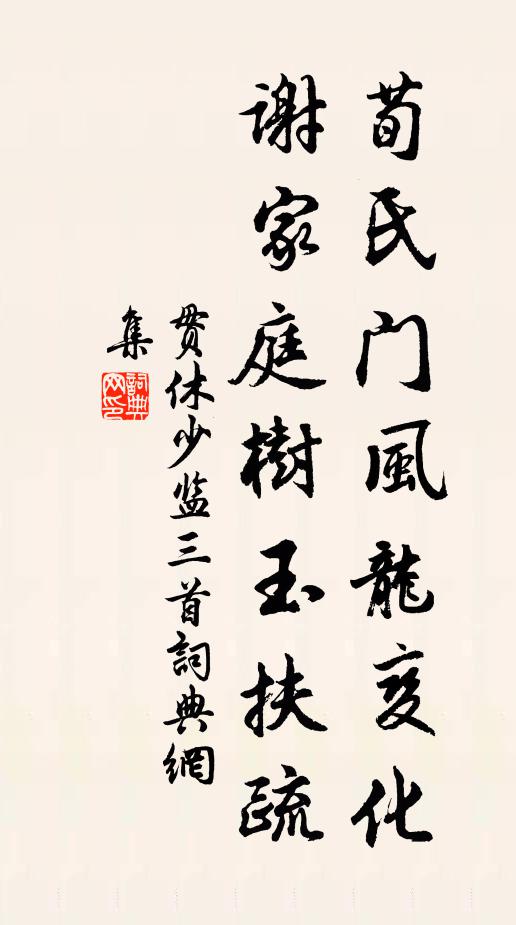 荀氏门風龍变化
谢家庭樹玉扶疏
贯休少监三首詞典網
集
詞典
网印